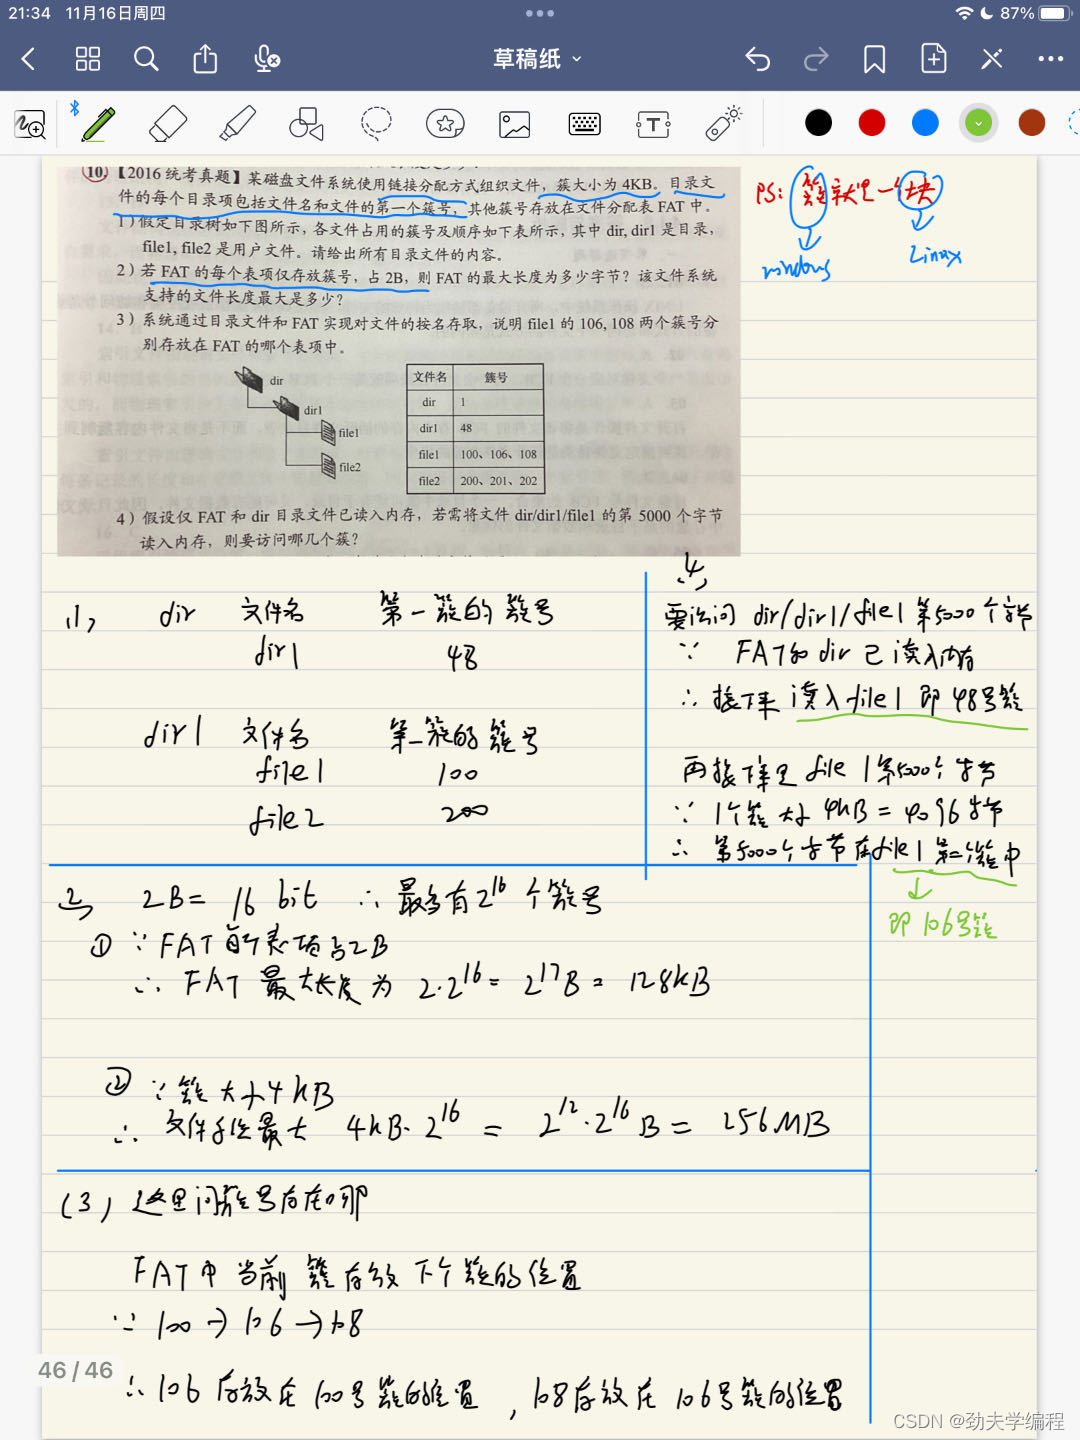 21:34 11月16日周四
87%
草稿纸
10. 【2016 统考真题】某磁盘文件系统使用链接分配方式组织文件，簇大小为 4KB。目录文
件的每个目录项包括文件名和文件的第一个簇号，其他簇号存放在文件分配表 FAT 中。
1）假定目录树如下图所示，各文件占用的簇号及顺序如下表所示，其中 dir, dir1 是目录，
file1, file2 是用户文件。请给出所有目录文件的内容。
2）若 FAT 的每个表项仅存放簇号，占 2B，则 FAT 的最大长度为多少字节？该文件系统
支持的文件长度最大是多少？
3）系统通过目录文件和 FAT 实现对文件的按名存取，说明 file1 的 106, 108 两个簇号分
别存放在 FAT 的哪个表项中。
dir
dir1
file1
file2
文件名 簇号
dir 1
dir1 48
file1 100、106、108
file2 200、201、202
4）假设仅 FAT 和 dir 目录文件已读入内存，若需将文件 dir/dir1/file1 的第 5000 个字节
读入内存，则要访问哪几个簇？
PS: 簇就是一个块
windows
Linux
(1)
dir 文件名 第一簇的簇号
dir1 48
dir1 文件名 第一簇的簇号
file1 100
file2 200
4)
要访问 dir/dir1/file1 第5000个字节
∵ FAT和dir已读入内存
∴ 接下来读入file1 即48号簇
再接下来是file1第5000个字节
∵ 1个簇大小4KB = 4096字节
∴ 第5000个字节在file1第二个簇中
即106号簇
2) 2B = 16 bit ∴ 最多有2^16个簇号
① ∵ FAT每个表项占2B
∴ FAT最大长度为 2·2^16 = 2^17B = 128KB
② ∵ 簇大小4KB
∴ 文件长度最大 4KB·2^16 = 2^12·2^16B = 256MB
(3) 这里问簇号存在哪
FAT中当前簇存放下个簇的位置
∵ 100→106→108
∴ 106存放在100号簇的位置，108存放在106号簇的位置
46 / 46
CSDN @劲夫学编程